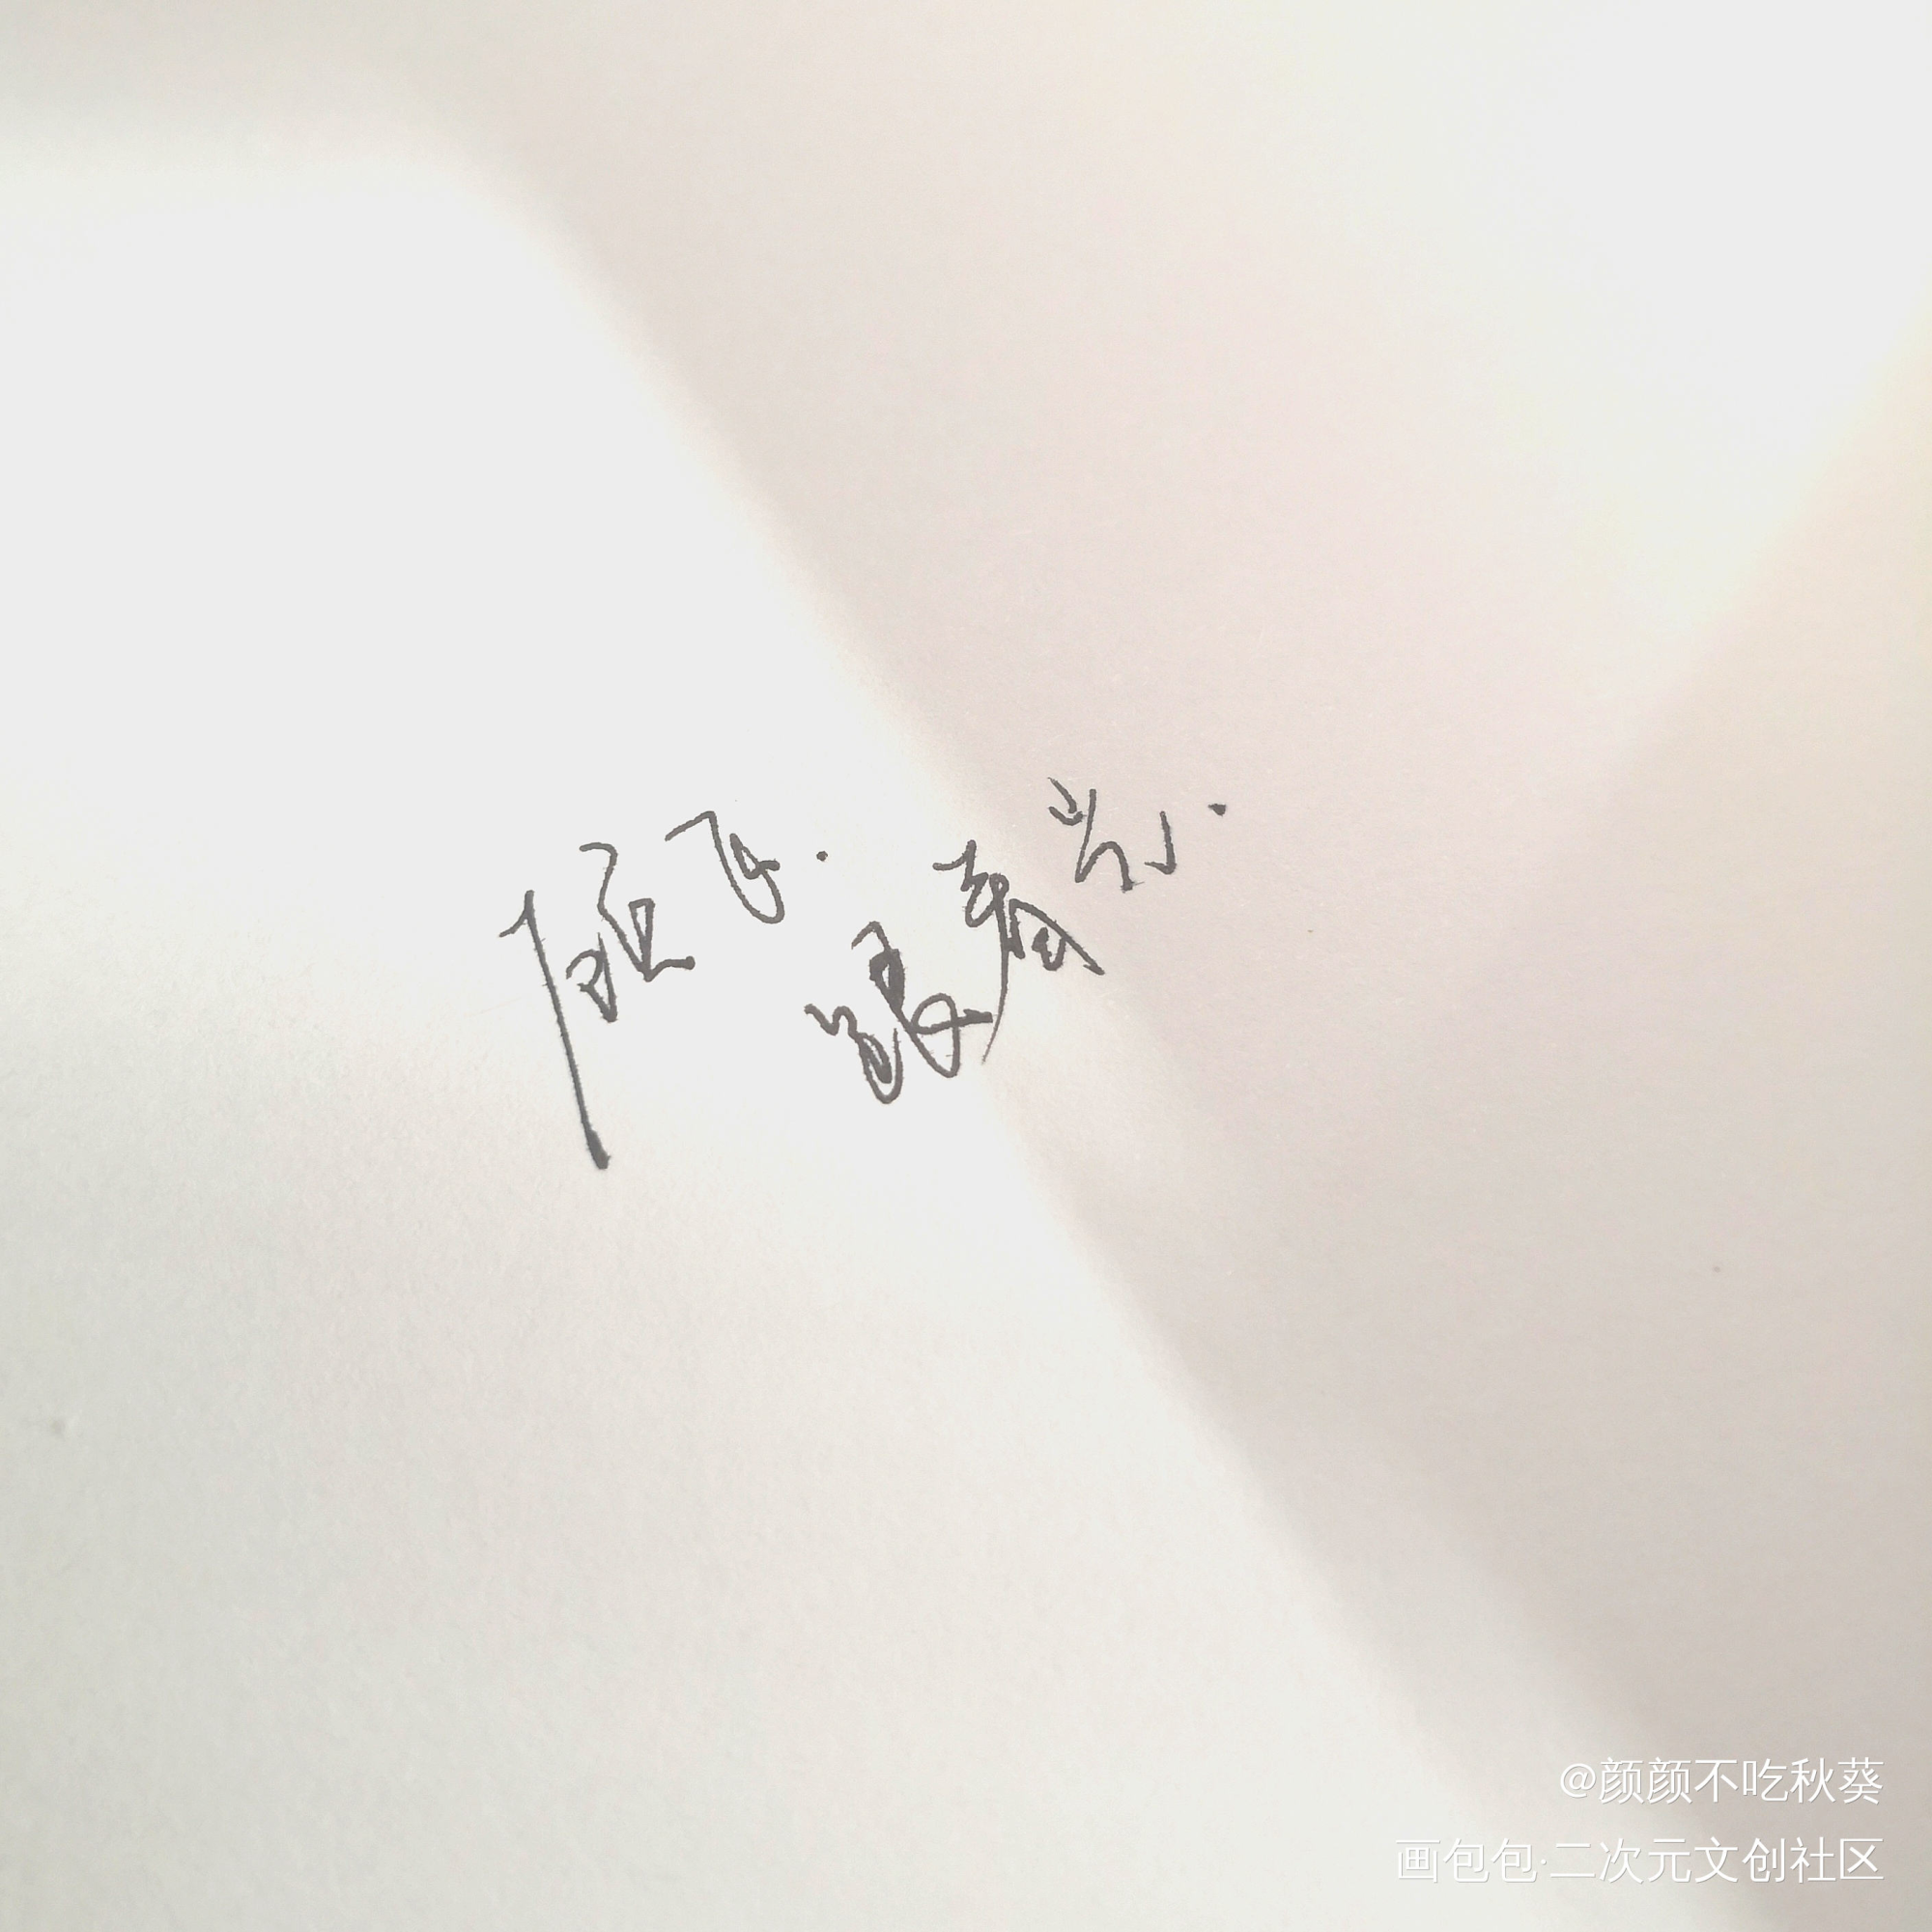 顾飞.
跟着光.
@颜颜不吃秋葵
画包包·二次元文创社区